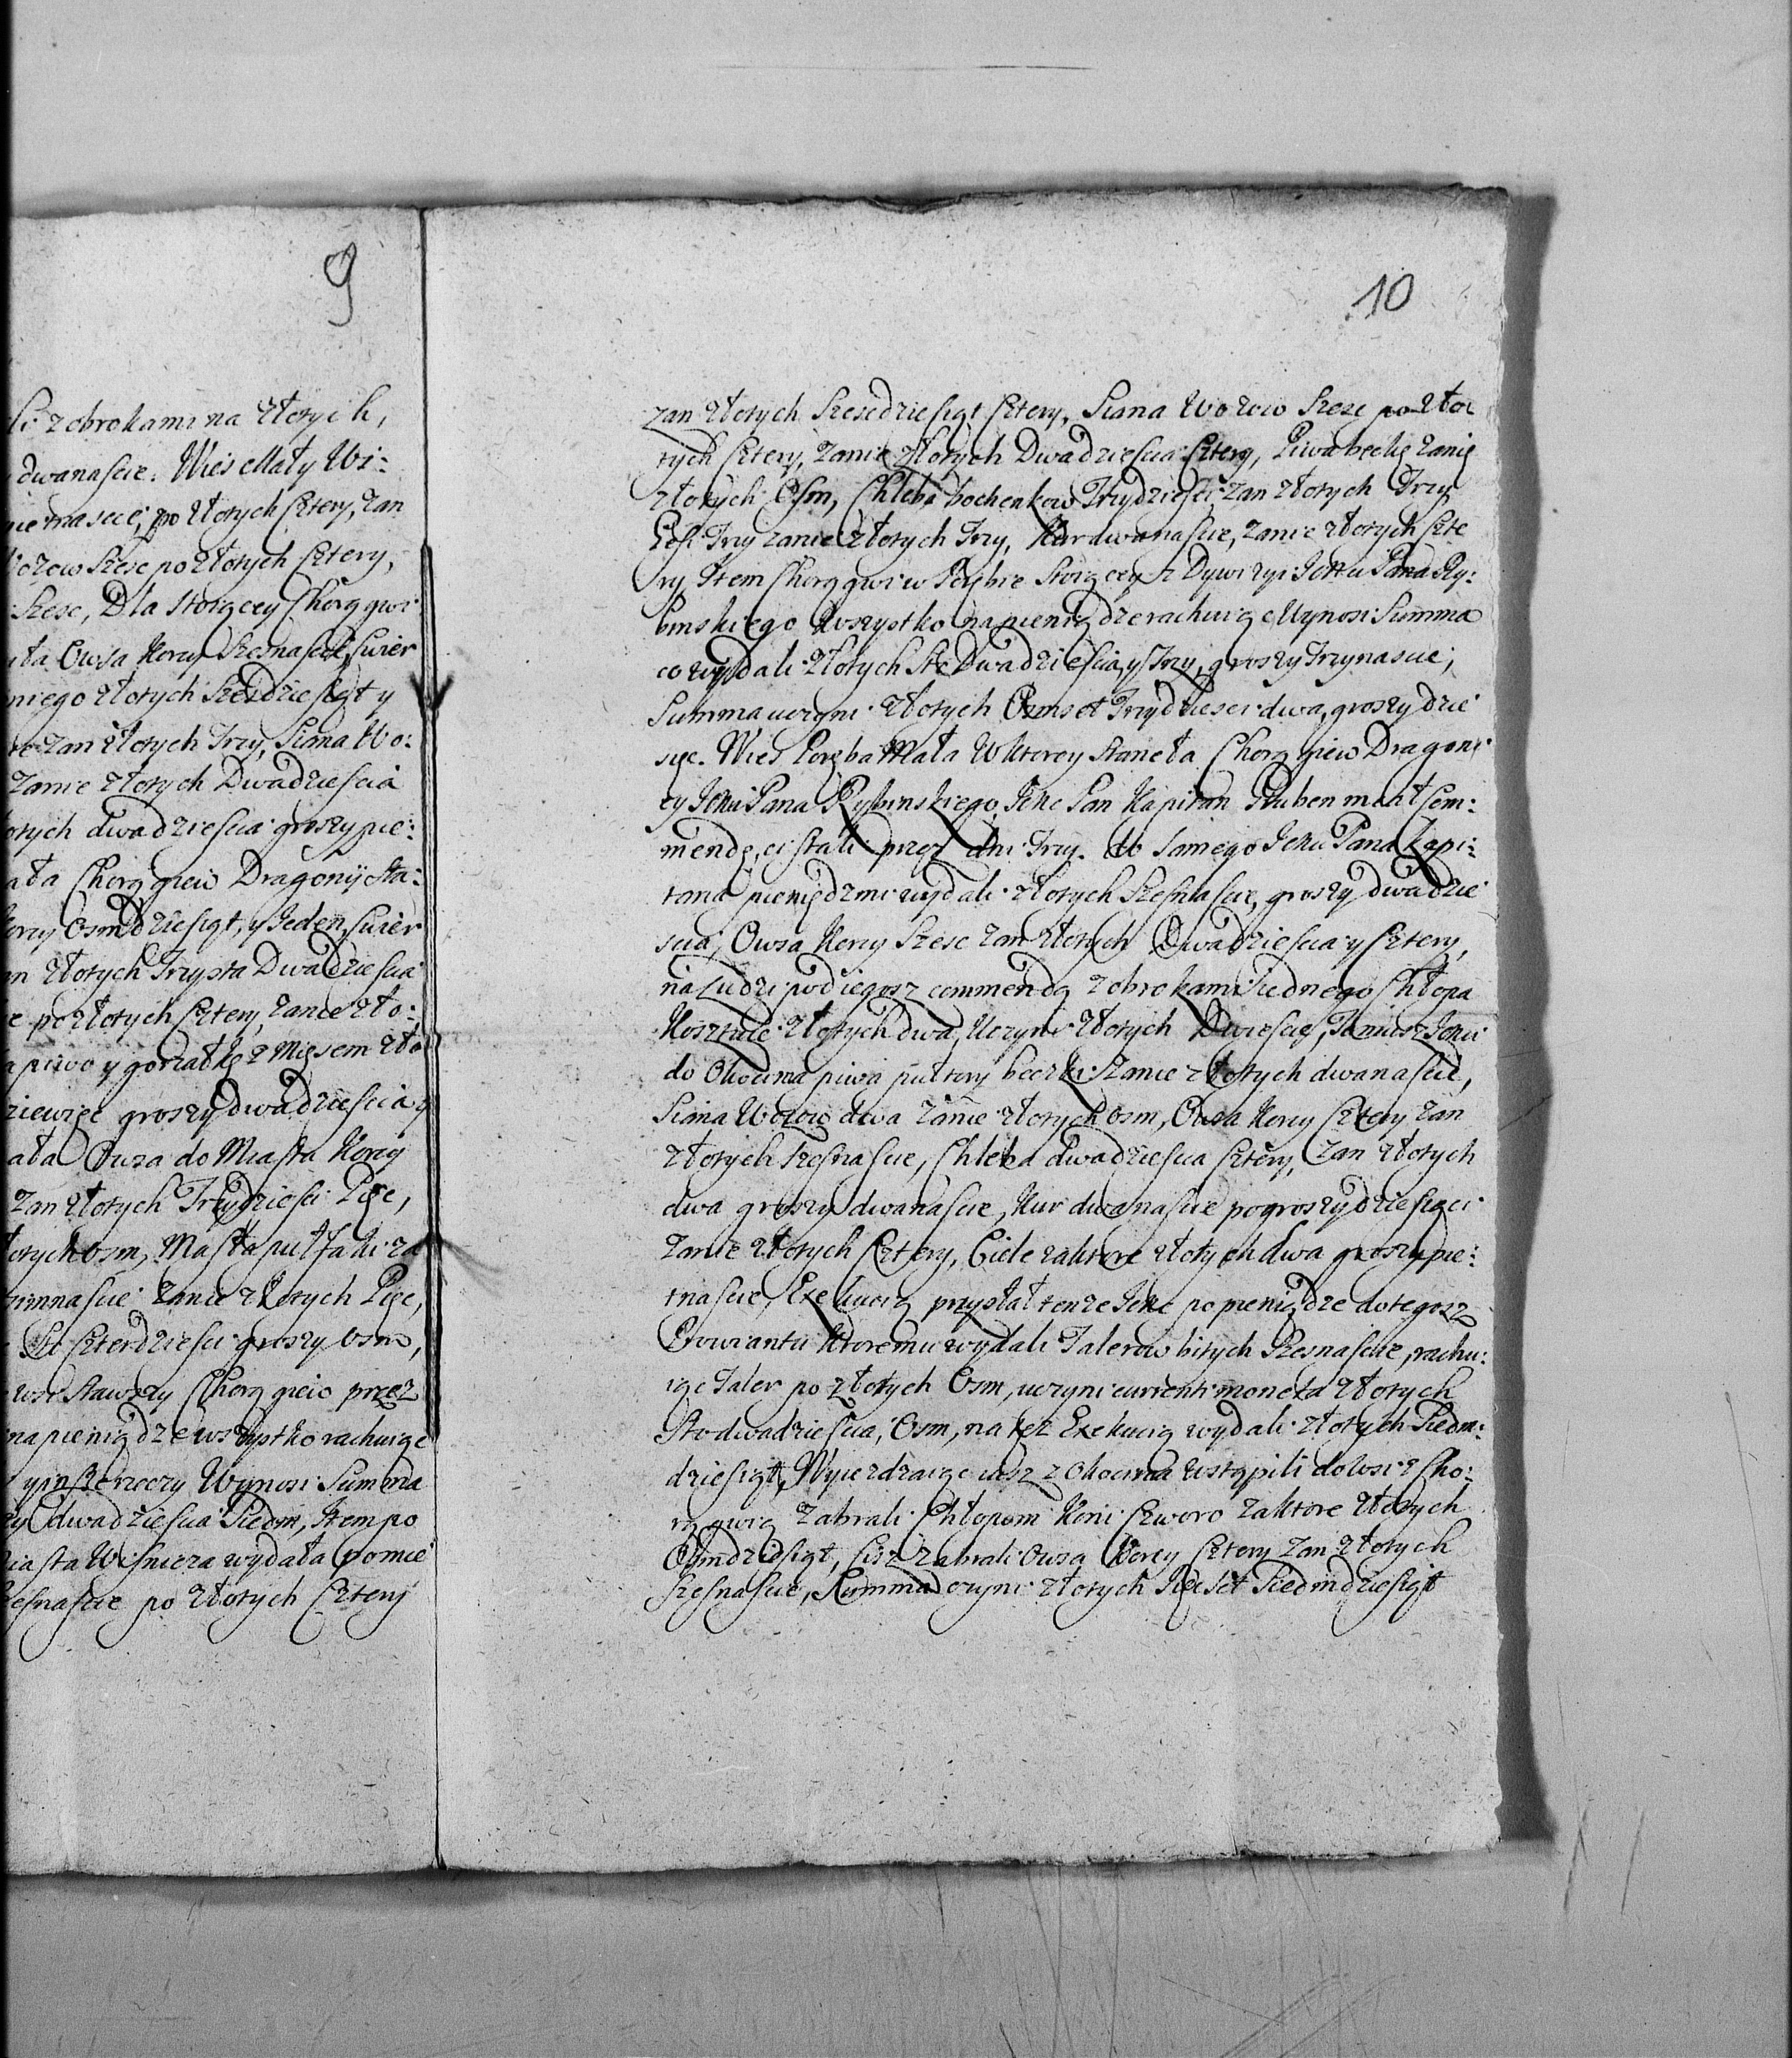 9
li z obrokami na złotych,
dwanascie. Wieś Mały Wi:
nie trnascie, po złotych Cztery, zan
Wozow Szesc po złotych Cztery,
Szesc, Dla stoiącey Chorągwi
ała Owsa Korcy Szesnascie, cwier
niego złotych Szescdziesiąt y
zan złotych Trzy, Siana Wo:
zanie złotych Dwadziescia
otych dwadziescia groszy pie:
ała Chorągiew Dragonÿ sta:
Korcy Osmdziesiąt, y Jeden, cwier
an złotych Trzysta Dwadziescia
po złotych Cztery, zanie zło:
a piwo y gorzałkę z Mięsem zło
ziewięc groszy dwadziescia y
ała Owsa do Miasta Korcy
zan złotych Trzydziesci Pięc,
łotych osm, Masła pułfaski za
zanie złotych Pięc,
Sto Czterdziesci groszy osm,
wsi stawszy Chorągiew przez
na pieniądze wszystko rachuiąc
rzeczy Wynosi Summa
dwadziescia Siedm, Item po
iasta Wisnicza wydała pomie
zesnascie po złotych Cztery
10
zan złotych Szescdziesiąt Cztery, Siana Wozow Szesc po zło
tych Cztery, zanie złotych Dwadziescia Cztery, Piwa beckę zanię
złotych Osm, Chleba bochenkow Trzydziesci zan złotych Trzy
Gęsi Trzy zanie złotych Trzy, Kur dwanascie, zanie złotych Czte
ry Item Chorągwi w Porębie Stoiącey z Dywizyi Jmci Pana Ry:
binskiego wszystko na pieniądze rachuiąc Wynosi Summa
co wydali złotych Sto Dwadziescia, y Trzy, groszy Trzynascie,
Summa uczyni złotych Osmset Trzydziesci dwa, groszy dzie
sięc. Wies Poręba Mała W ktorey staneła Chorągiew Dragoni
ey Jmci Pana Rybinskiego, Jmc Pan Kapitan Huben miał Com:
mendę, ci stali przez dni Trzy. do samego Jmci Pana Kapi:
tana pieniędzmi wydali złotych Szesnascie, groszy dwadzie
scia, Owsa Korcy Szesc zan złotych Dwadziescia y Cztery,
na Ludzi pod iegosz commendą z obrokami iednego Chłopa
Kosztuie złotych dwa, Uczyni złotych Dwiescie, Temusz Jmci
do Okocima piwa pułtory beczki zanie złotych dwanascie,
Siana Wozow dwa zanie złotych osm, Owsa Korcy Cztery zan
złotych Szesnascie, Chleba dwadziescia Cztery, zan złotych
dwa groszy dwanascie, Kur dwanascie po groszy dziesięci
zanie złotych Cztery, Ciele zaktore złotych dwa groszy pie:
tnascie, Exekucią przysłał tenze Jmc po pieniądze do tegosz
Prowiantu ktoremu wydali Talerow bitych Szesnascie, rachu:
iąc Taler po złotych Osm, uczyni currenti moneta złotych
Stodwadziescia, Osm, na też Exekucią wydali złotych Siedm:
dziesiąt, Wyiezdzaiąc iusz z Okocima wstąpili do wsi z Cho:
rągwią zabrali Chłopom Koni Czworo zaktore złotych
Osmdziesiąt, ciisz zabrali Owsa Korcy Cztery zan złotych
Szesnascie, Summa czyni złotych Pięcset Siedmdziesiąt